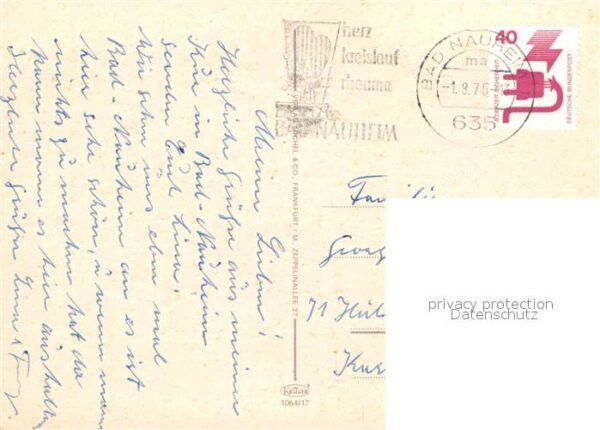 Meine Lieben!
Herzliche Grüße aus meiner
Kur in Bad-Nauheim
senden Euch
Wir sehen uns eben mal
Bad-Nauheim an es ist
hier sehr schön, u wenn man
nichts zu machen hat da
kann mann es hier aushalten
Herzliche Grüße
herz
kreislauf
rheuma
BAD NAUHEIM
BAD NAUHEIM
ma
-1.8.76
635
40
DEUTSCHE BUNDESPOST
Familie
71
& CO. FRANKFURT / M. ZEPPELINALLEE 27
1064/17
privacy protection
Datenschutz